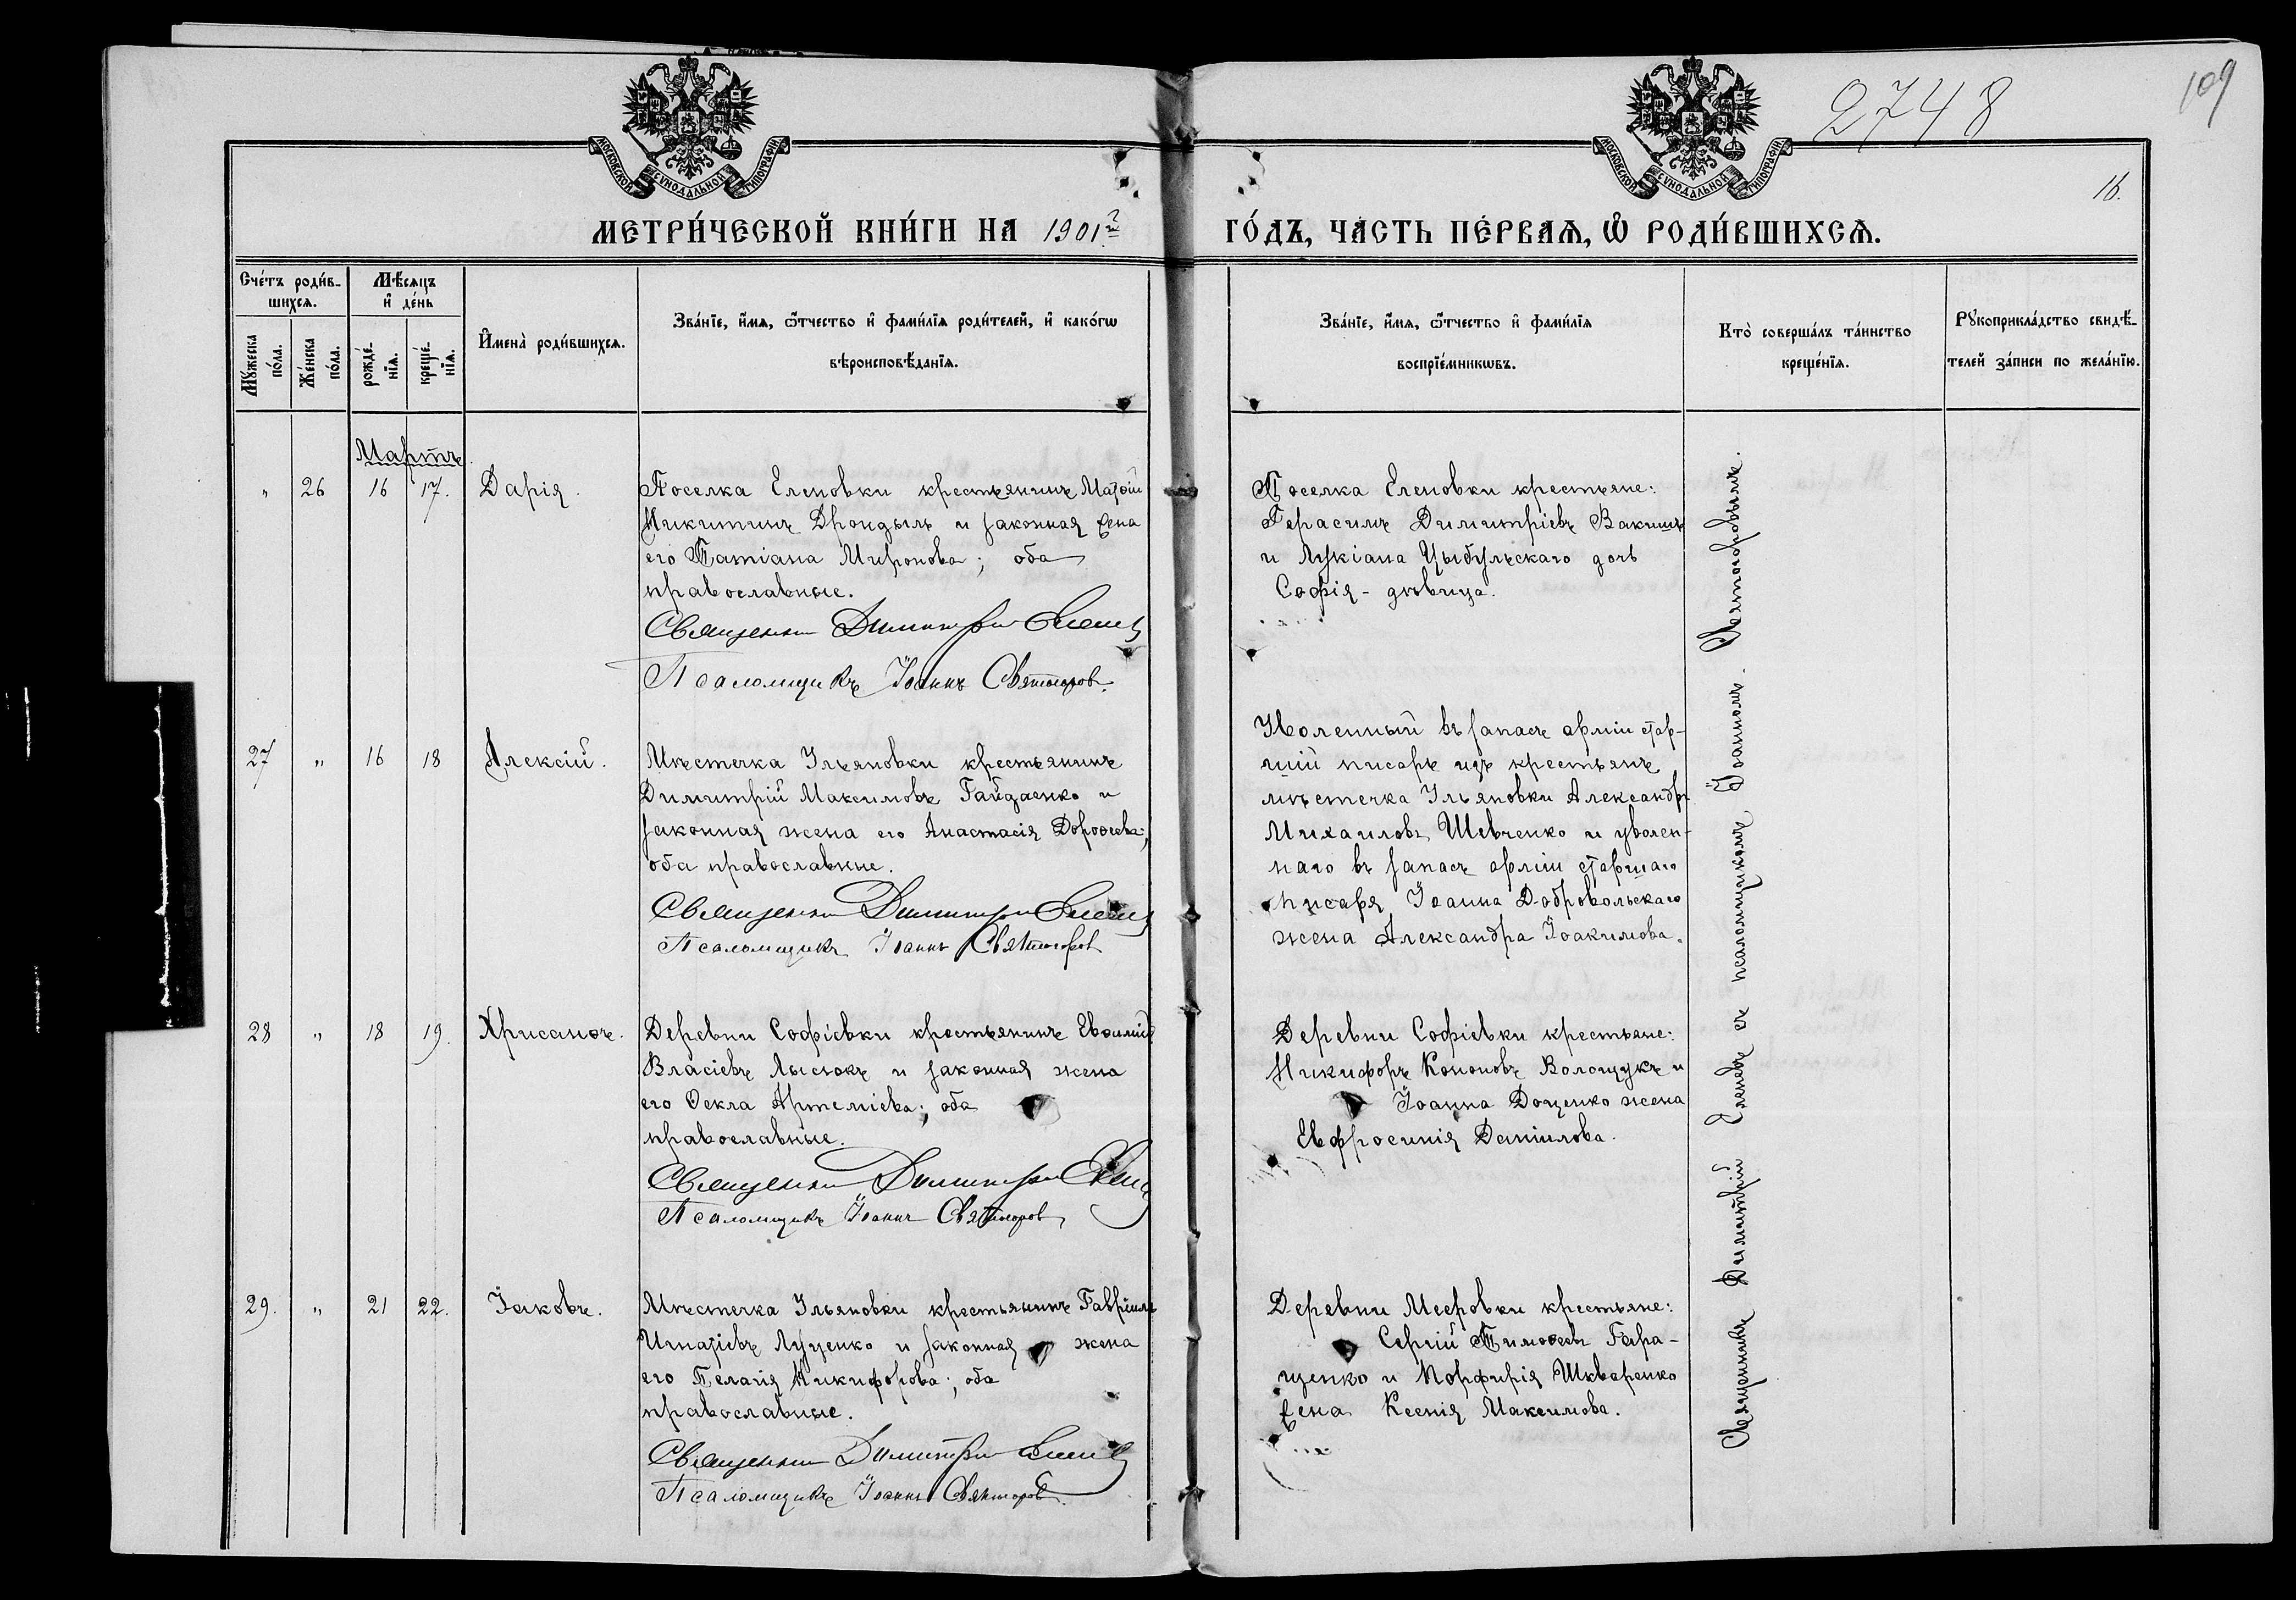 2748
109
16.
МОСКОВСКОЙ СѴНОДАЛЬНОЙ ТИПОГРАФІИ
МОСКОВСКОЙ СѴНОДАЛЬНОЙ ТИПОГРАФІИ
МЕТРИ́ЧЕСКОЙ КНИ́ГИ НА 1901й
ГО́ДЪ, ЧА́СТЬ ПЕ́РВАѦ, Ѿ РОДИ́ВШИХСѦ.
Сче́тъ роди́в-
шихсѧ.
Мꙋжеска
по́ла.
Же́нска
по́ла.
Мѣ́сѧцъ
и҆ де́нь
рожде́-
нїѧ.
креще́-
нїѧ.
И҆мена̀ роди́вшихсѧ.
Зва́нїе, и҆́мѧ, ѻ҆́тчество и҆ фами́лїѧ роди́телей, и҆ како́гѡ
вѣроисповѣ́данїѧ.
Зва́нїе, и҆́мѧ, ѻ҆́тчество и҆ фами́лїѧ
воспрїе́мникѡвъ.
Кто̀ соверша́лъ та́инство
креще́нїѧ.
Рꙋкоприкла́дство свидѣ́-
телей за́писи по жела́нїю.
Мартъ
" 26 16 17. Дарія.
Поселка Еленовки крестьянинъ Матѳій
Никитинъ Дрондыль и законная жена
его Татіана Миронова; оба
православные.
Священникъ Димитрій Еленевъ
Псаломщикъ Іоаннъ Святогоровъ.
Поселка Еленовки крестьяне:
Герасимъ Димитріевъ Вакишъ
и Лукіана Цыбульскаго дочь
Софія - дѣвица.
27 " 16 18 Алексій.
Мѣстечка Ильяновки крестьянинъ
Димитрій Максимовъ Гайдаенко и
законная жена его Анастасія Дороѳеева;
оба православные.
Священникъ Димитрій Еленевъ
Псаломщикъ Іоаннъ Святогоровъ
Уволенный въ запасъ арміи стар-
шій писарь изъ крестьянъ
мѣстечка Ильяновки Александръ
Михаиловъ Шевченко и уволен-
наго въ запасъ арміи старшаго
писаря Іоанна Добровольскаго
жена Александра Іоакимова.
28 " 18 19. Хрисанѳъ.
Деревни Софіевки крестьянинъ Евѳимій
Власіевъ Лысюкъ и законная жена
его Ѳекла Артеміева; оба
православные.
Священникъ Димитрій Еленевъ
Псаломщикъ Іоаннъ Святогоровъ
Деревни Софіевки крестьяне:
Никифоръ Кононовъ Волощукъ и
Іоанна Доценко жена
Евфросинія Даніилова.
29. " 21 22. Іаковъ.
Мѣстечка Ильяновки крестьянинъ Гавріилъ
Игнатіевъ Луценко и законная жена
его Пелагія Никифорова; оба
православные.
Священникъ Димитрій Еленевъ
Псаломщикъ Іоаннъ Святогоровъ.
Деревни Мееровки крестьяне:
Сергій Тимоѳеевъ Гера-
щенко и Порфирія Шкваренко
жена Ксенія Максимова.
Священникъ Димитрій Еленевъ съ псаломщикомъ Іоанномъ Святогоровымъ.